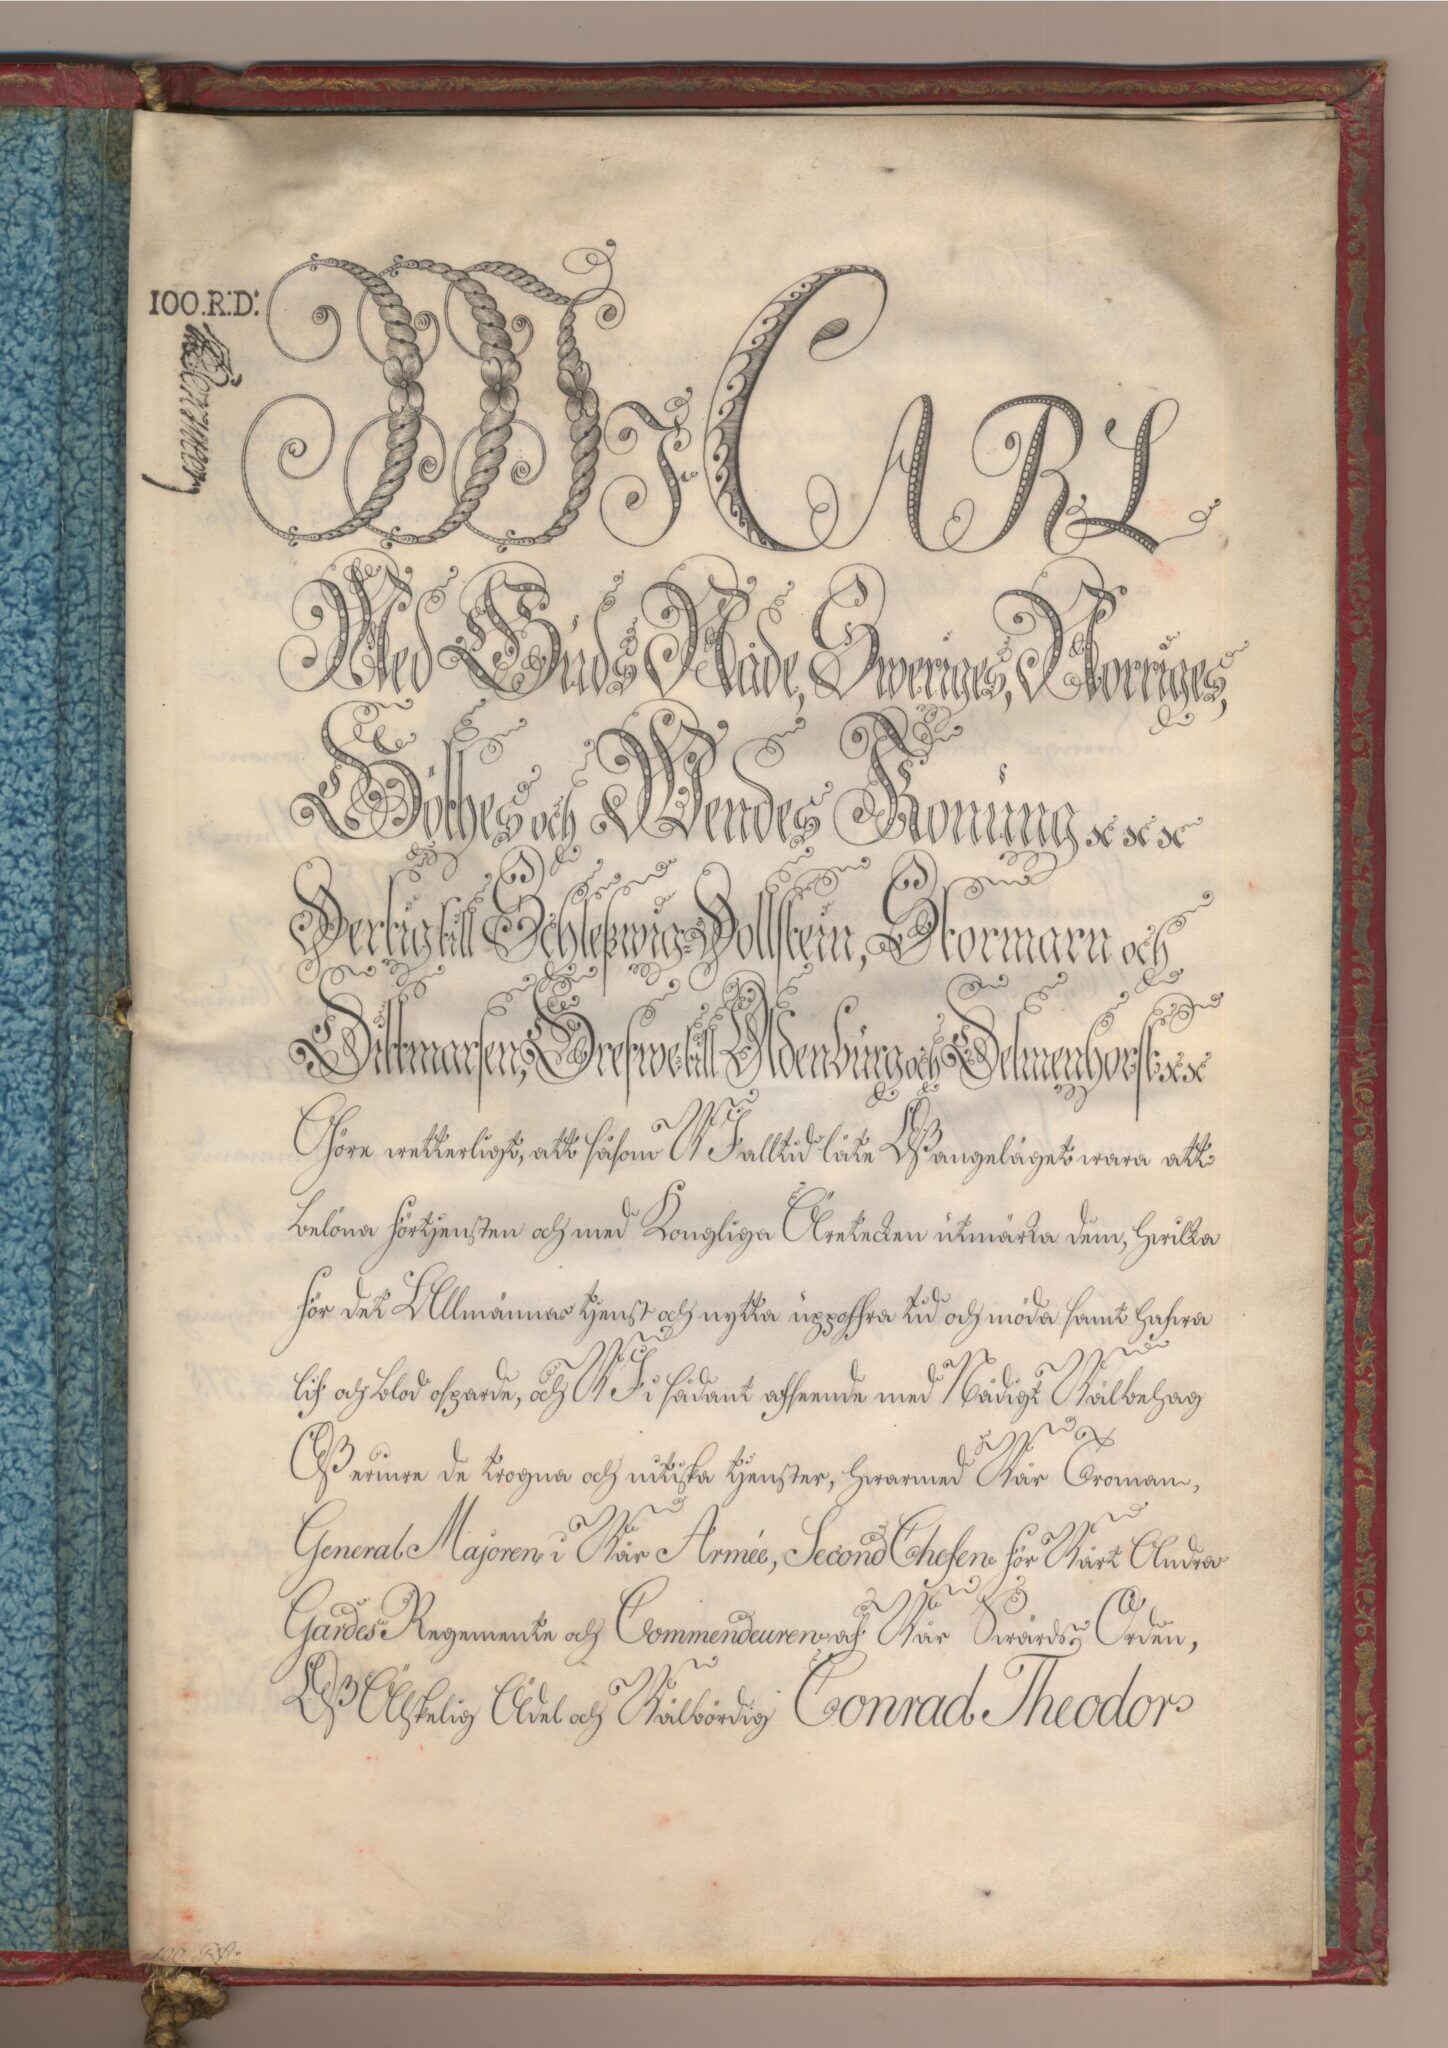 100.R:D:
Wi CARL
Med Guds Nåde, Sweriges, Norriges,
Göthes och Wendes Konung x x x
Hertig till Schleßwig-Hollstein, Stormarn och
Dittmarsen, Grefwe till Oldenburg och Delmenhorst x x
Göre wetterligt, att såsom Wi alltid låte Oß angeläget wara att
belöna förtjensten och med Kongliga Äretecken utmärka dem, hwilka
för det Allmännas tjenst och nytta uppoffra tid och möda samt hafwa
lif och blod ospardt, och Wi i sådant afseende med Nådigt Wälbehag
Oß erinre de trogna och nitiska tjenster, hwarmed Wår Troman,
General Majoren i Wår Armée, Second Chefen för Wårt Andra
Gardes Regemente och Commendeuren af Wår Swärds Orden,
Oß Älskelig Ädel och Wälbördig Conrad Theodor
100. RD.